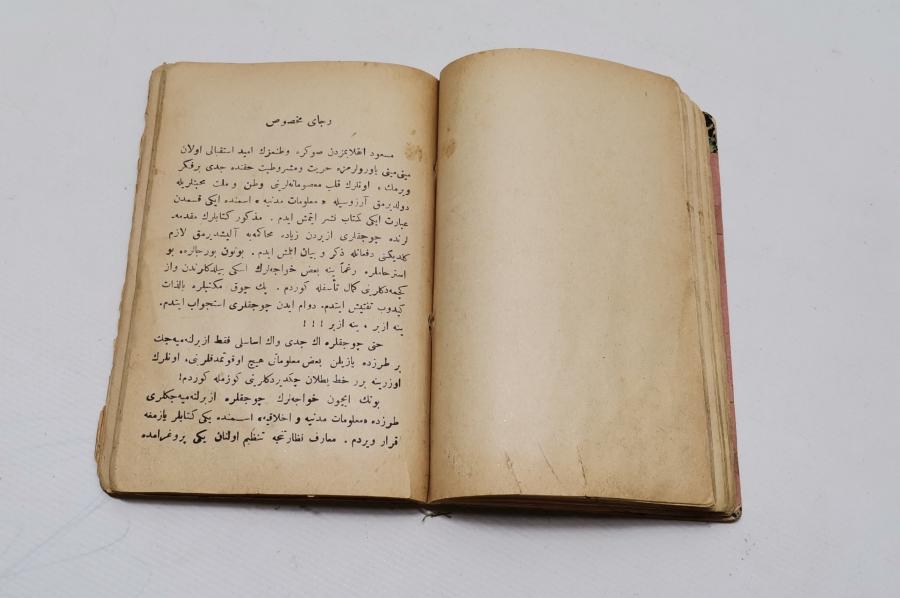 رجای مخصوص
مسعود انقلابمزدن صوكره وطنمزك اميد استقبالی اولان
مينی مينی ياورولرمزه حريت ومشروطيت حقنده جدی برفكر
ويرمك ، اونلرك قلب معصومانه‌لرينی وطن و ملت محبتلريله
دولديرمق آرزوسيله «معلومات مدنيه» اسمنده ايكی قسمدن
عبارت ايكی كتاب نشر ايتمش ايدم . مذكور كتابلرك مقدمه‌
لرنده چوجقلری ازبردن زياده محاكمه‌يه آليشديرمق لازم
كلديكنی دفعاتله ذكر و بيان ايتمش ايدم . بوتون بورجالره، بو
استرحاملره رغماً ينه بعض خواجه‌لرك اسكی بيلدكلرندن واز
كچمه‌دكلرينی كمال تأسفله كوردم . پك چوق مكتبلره بالذات
كيدوب تفتيش ايتدم. دوام ايدن چوجقلری استجواب ايتدم.
ينه ازبر ، ينه ازبر !!!
حتی چوجقلره اك جدی واك اساسلی فقط ازبرلنه‌ميه‌جك
بر طرزده يازيلان بعض معلوماتی هيچ اوقوتمدقلرينی، اونلرك
اوزرينه برر خط بطلان چكديردكلرينی كوزمله كوردم!
بونك ايچون خواجه‌لرك چوجقلره ازبرلنه‌ميه‌جكلری
طرزده «معلومات مدنيه و اخلاقيه» اسمنده يكی كتابلر يازمغه
قرار ويردم . معارف نظارتنجه تنظيم اولنان يكی پروغرامده